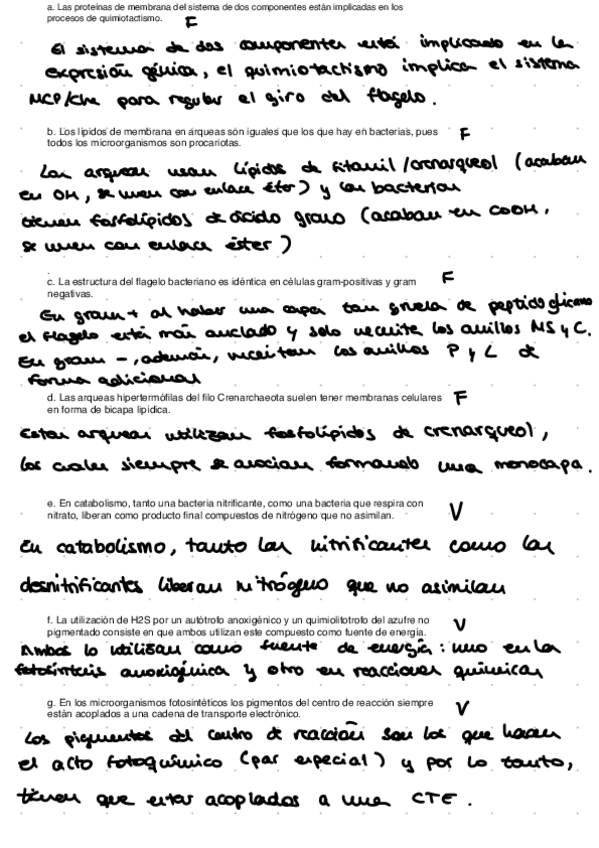 a. Las proteínas de membrana del sistema de dos componentes están implicadas en los
procesos de quimiotactismo. F
El sistema de dos componentes está implicado en la
expresión génica, el quimiotactismo implica el sistema
MCP/Che para regular el giro del flagelo.
b. Los lípidos de membrana en arqueas son iguales que los que hay en bacterias, pues F
todos los microorganismos son procariotas.
Las arqueas usan lípidos de fitanil/crenarqueol (acaban
en OH, se unen con enlace éter) y las bacterias
tienen fosfolípidos de ácido graso (acaban en COOH,
se unen con enlace éster)
c. La estructura del flagelo bacteriano es idéntica en células gram-positivas y gram F
negativas.
En gram + al haber una capa tan gruesa de peptidoglicano
el flagelo está más anclado y solo necesita los anillos MS y C.
En gram -, además, necesitan los anillos P y L de
forma adicional
d. Las arqueas hipertermófilas del filo Crenarchaeota suelen tener membranas celulares F
en forma de bicapa lipídica.
Estas arqueas utilizan fosfolípidos de crenarqueol,
los cuales siempre se asocian formando una monocapa.
e. En catabolismo, tanto una bacteria nitrificante, como una bacteria que respira con
nitrato, liberan como producto final compuestos de nitrógeno que no asimilan. V
En catabolismo, tanto las nitrificantes como las
desnitrificantes liberan nitrógeno que no asimilan
f. La utilización de H2S por un autótrofo anoxigénico y un quimiolitotrofo del azufre no
pigmentado consiste en que ambos utilizan este compuesto como fuente de energía. V
Ambos lo utilizan como fuente de energía: uno en la
fotosíntesis anoxigénica y otro en reacciones químicas
g. En los microorganismos fotosintéticos los pigmentos del centro de reacción siempre
están acoplados a una cadena de transporte electrónico. V
Los pigmentos del centro de reacción son los que hacen
el acto fotoquímico (par especial) y por lo tanto,
tienen que estar acoplados a una CTE.